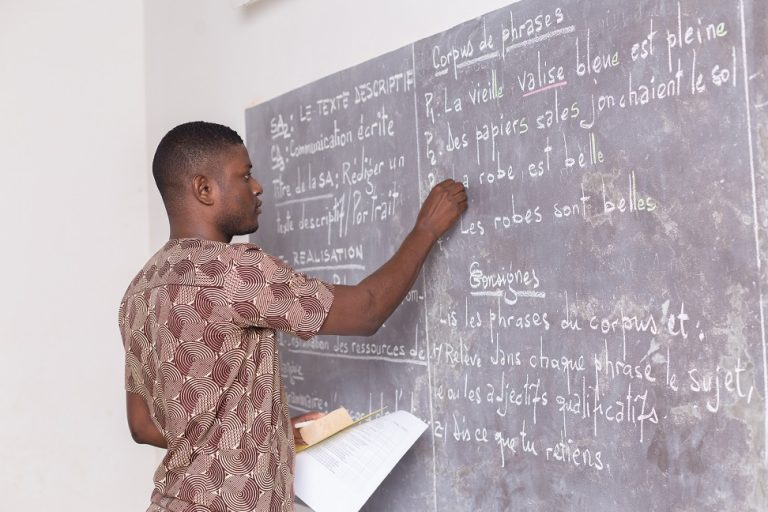 SA2: LE TEXTE DESCRIPTIF
SA: Communication écrite
Titre de la SA: Rédiger un
texte descriptif / Portrait
REALISATION
des ressources de
Corpus de phrases
P1: La vieille valise bleue est pleine
P2: Des papiers sales jonchaient le sol
robe est belle
Les robes sont belles
Consignes
Lis les phrases du corpus et:
1/ Relève dans chaque phrase le sujet,
le ou les adjectifs qualificatifs.
2/ Dis ce que tu retiens.